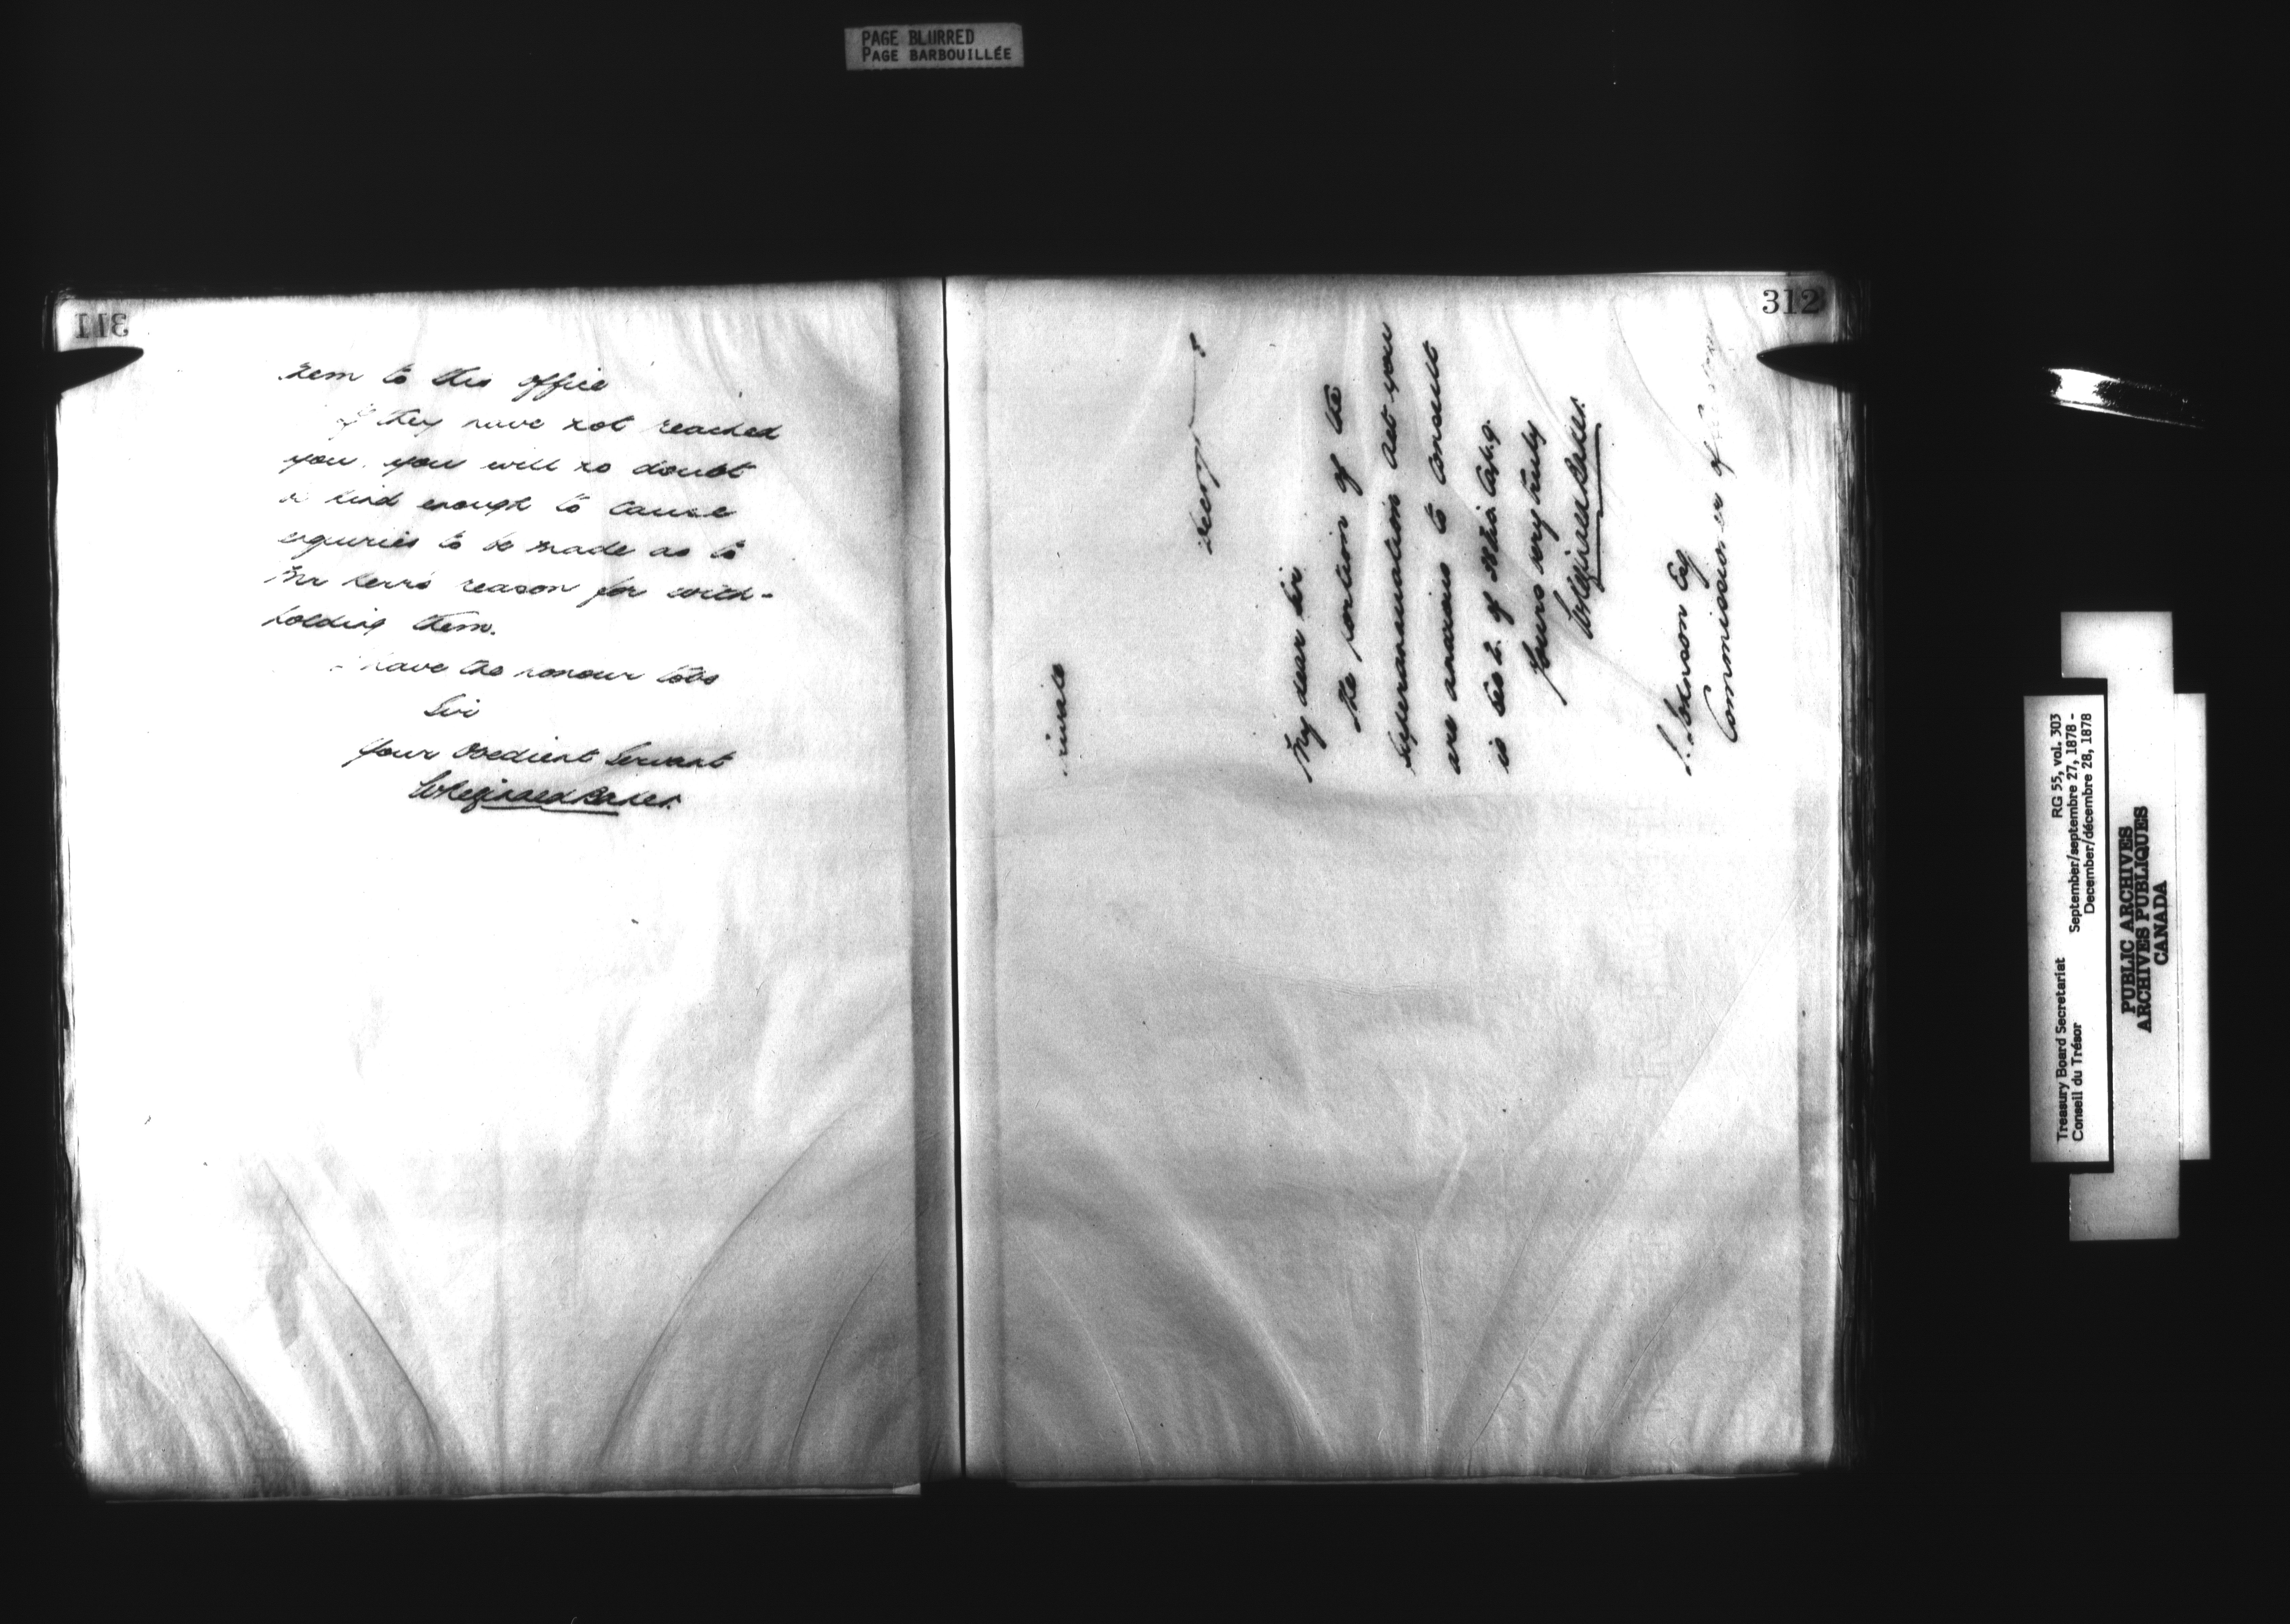 PAGE BLURRED
PAGE BARBOUILLÉE
311
them to this office
If they have not reached
you, you will no doubt
be kind enough to cause
enquiries to be made as to
Mr Kerr's reason for with-
holding them.
I have the honour to be
Sir
Your Obedient Servant
W Reginald Baker.
312
Private
My dear Sir
The portion of the
Superannuation Act you
are anxious to consult
is Sec 2. of Cap. 9.
Yours very truly
W Reginald Baker.
J. Johnson Esq
Commissioner of Customs
Treasury Board Secretariat RG 55, vol. 303
Conseil du Trésor September/septembre 27, 1878 -
December/décembre 28, 1878
PUBLIC ARCHIVES
ARCHIVES PUBLIQUES
CANADA